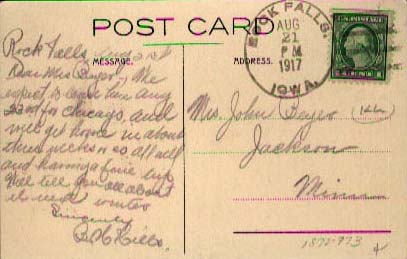 POST CARD
MESSAGE.
ADDRESS.
ROCK FALLS.
AUG
21
P M
1917
IOWA.
Rock Falls, Aug
Dear Mrs Beyer, We
expect to leave here Aug
23rd for Chicago, and
will get home in about
three weeks or so all well
and having a fine trip
Will tell you all about
it next winter
Sincerely
Mrs. John Beyer
Jackson
Minn
1872-973
4